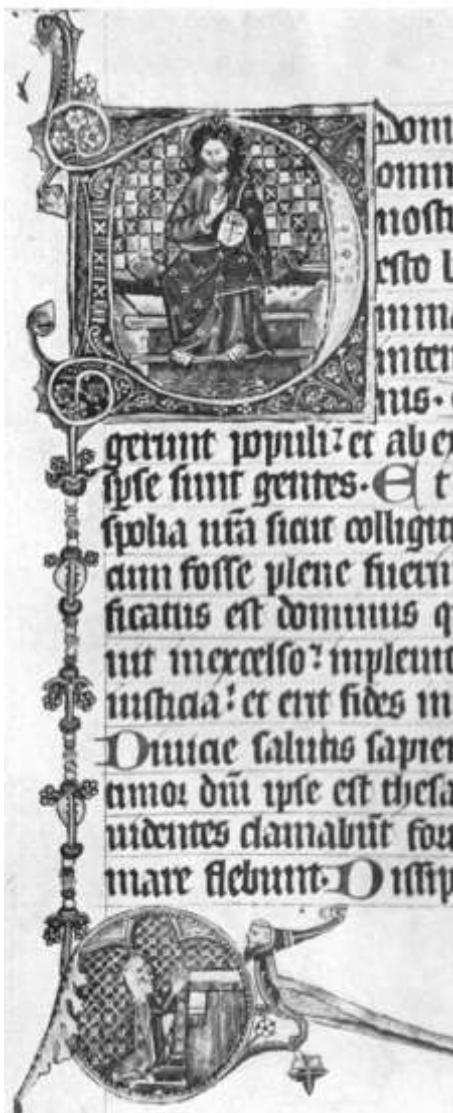 Domi
omni
nostr
esto b
in ma
inten
nus.
gerunt populi: et ab ex
sperse sunt gentes. Et
spolia ura sicut colligit
cum fosse plene fueri
ficatus est dominus q
uit in excelso: inpleuit
iusticia: et erit fides in
Diuicie salutis sapien
timor dni ipse est thesa
uidentes clamabut for
mare flebunt. Dissip